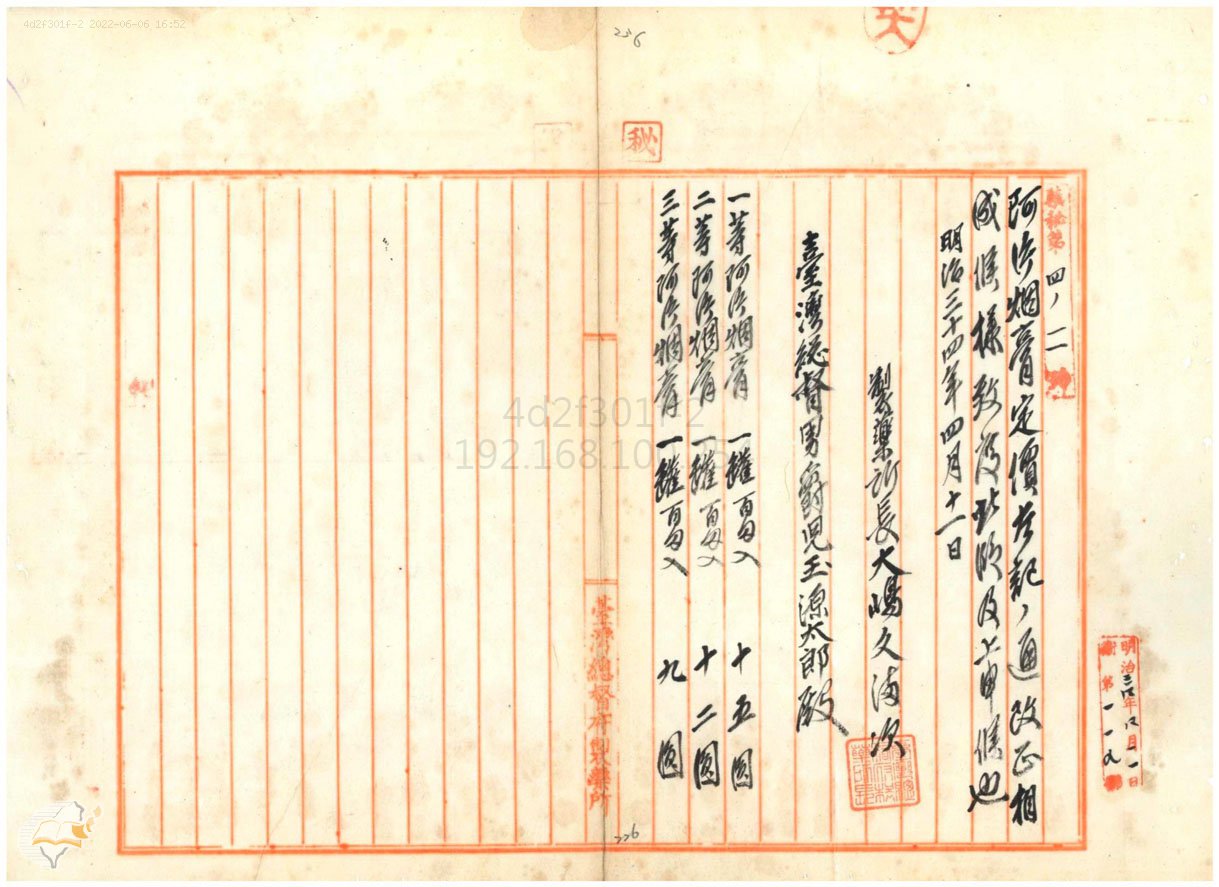 4d2f301f-2 2022-06-06 16:52
226
秘
製秘第四ノ二號
阿片烟膏定價左記ノ通改正相
成候様致度此段及上申候也
明治三十四年四月十一日
製藥所長大嶋久満次
臺灣総督男爵児玉源太郎殿
一等阿片烟膏 一罐百匁入 十五圓
二等阿片烟膏 一罐百匁入 十二圓
三等阿片烟膏 一罐百匁入 九圓
臺灣總督府製藥所
明治三四年四月一一日
第一一九號
226
4d2f301f-2
192.168.100.254